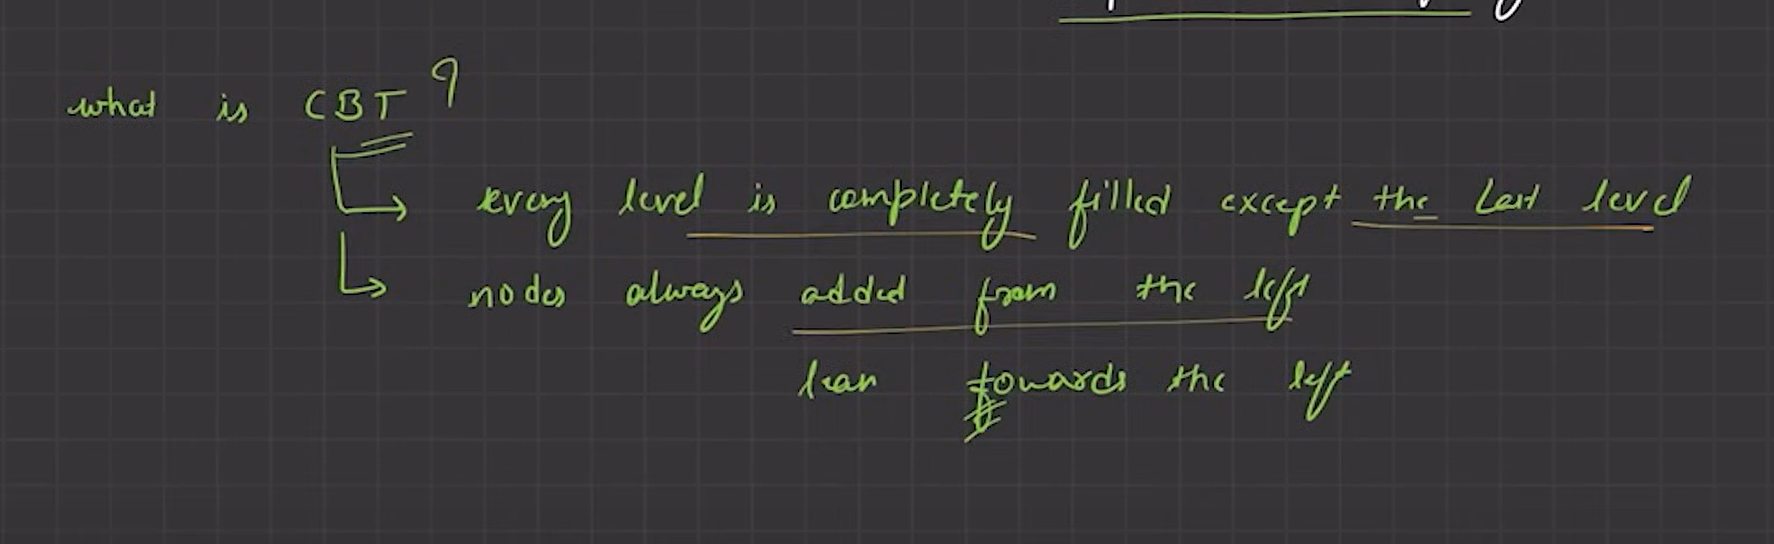 what is CBT ?
every level is completely filled except the last level
nodes always added from the left
lean towards the left